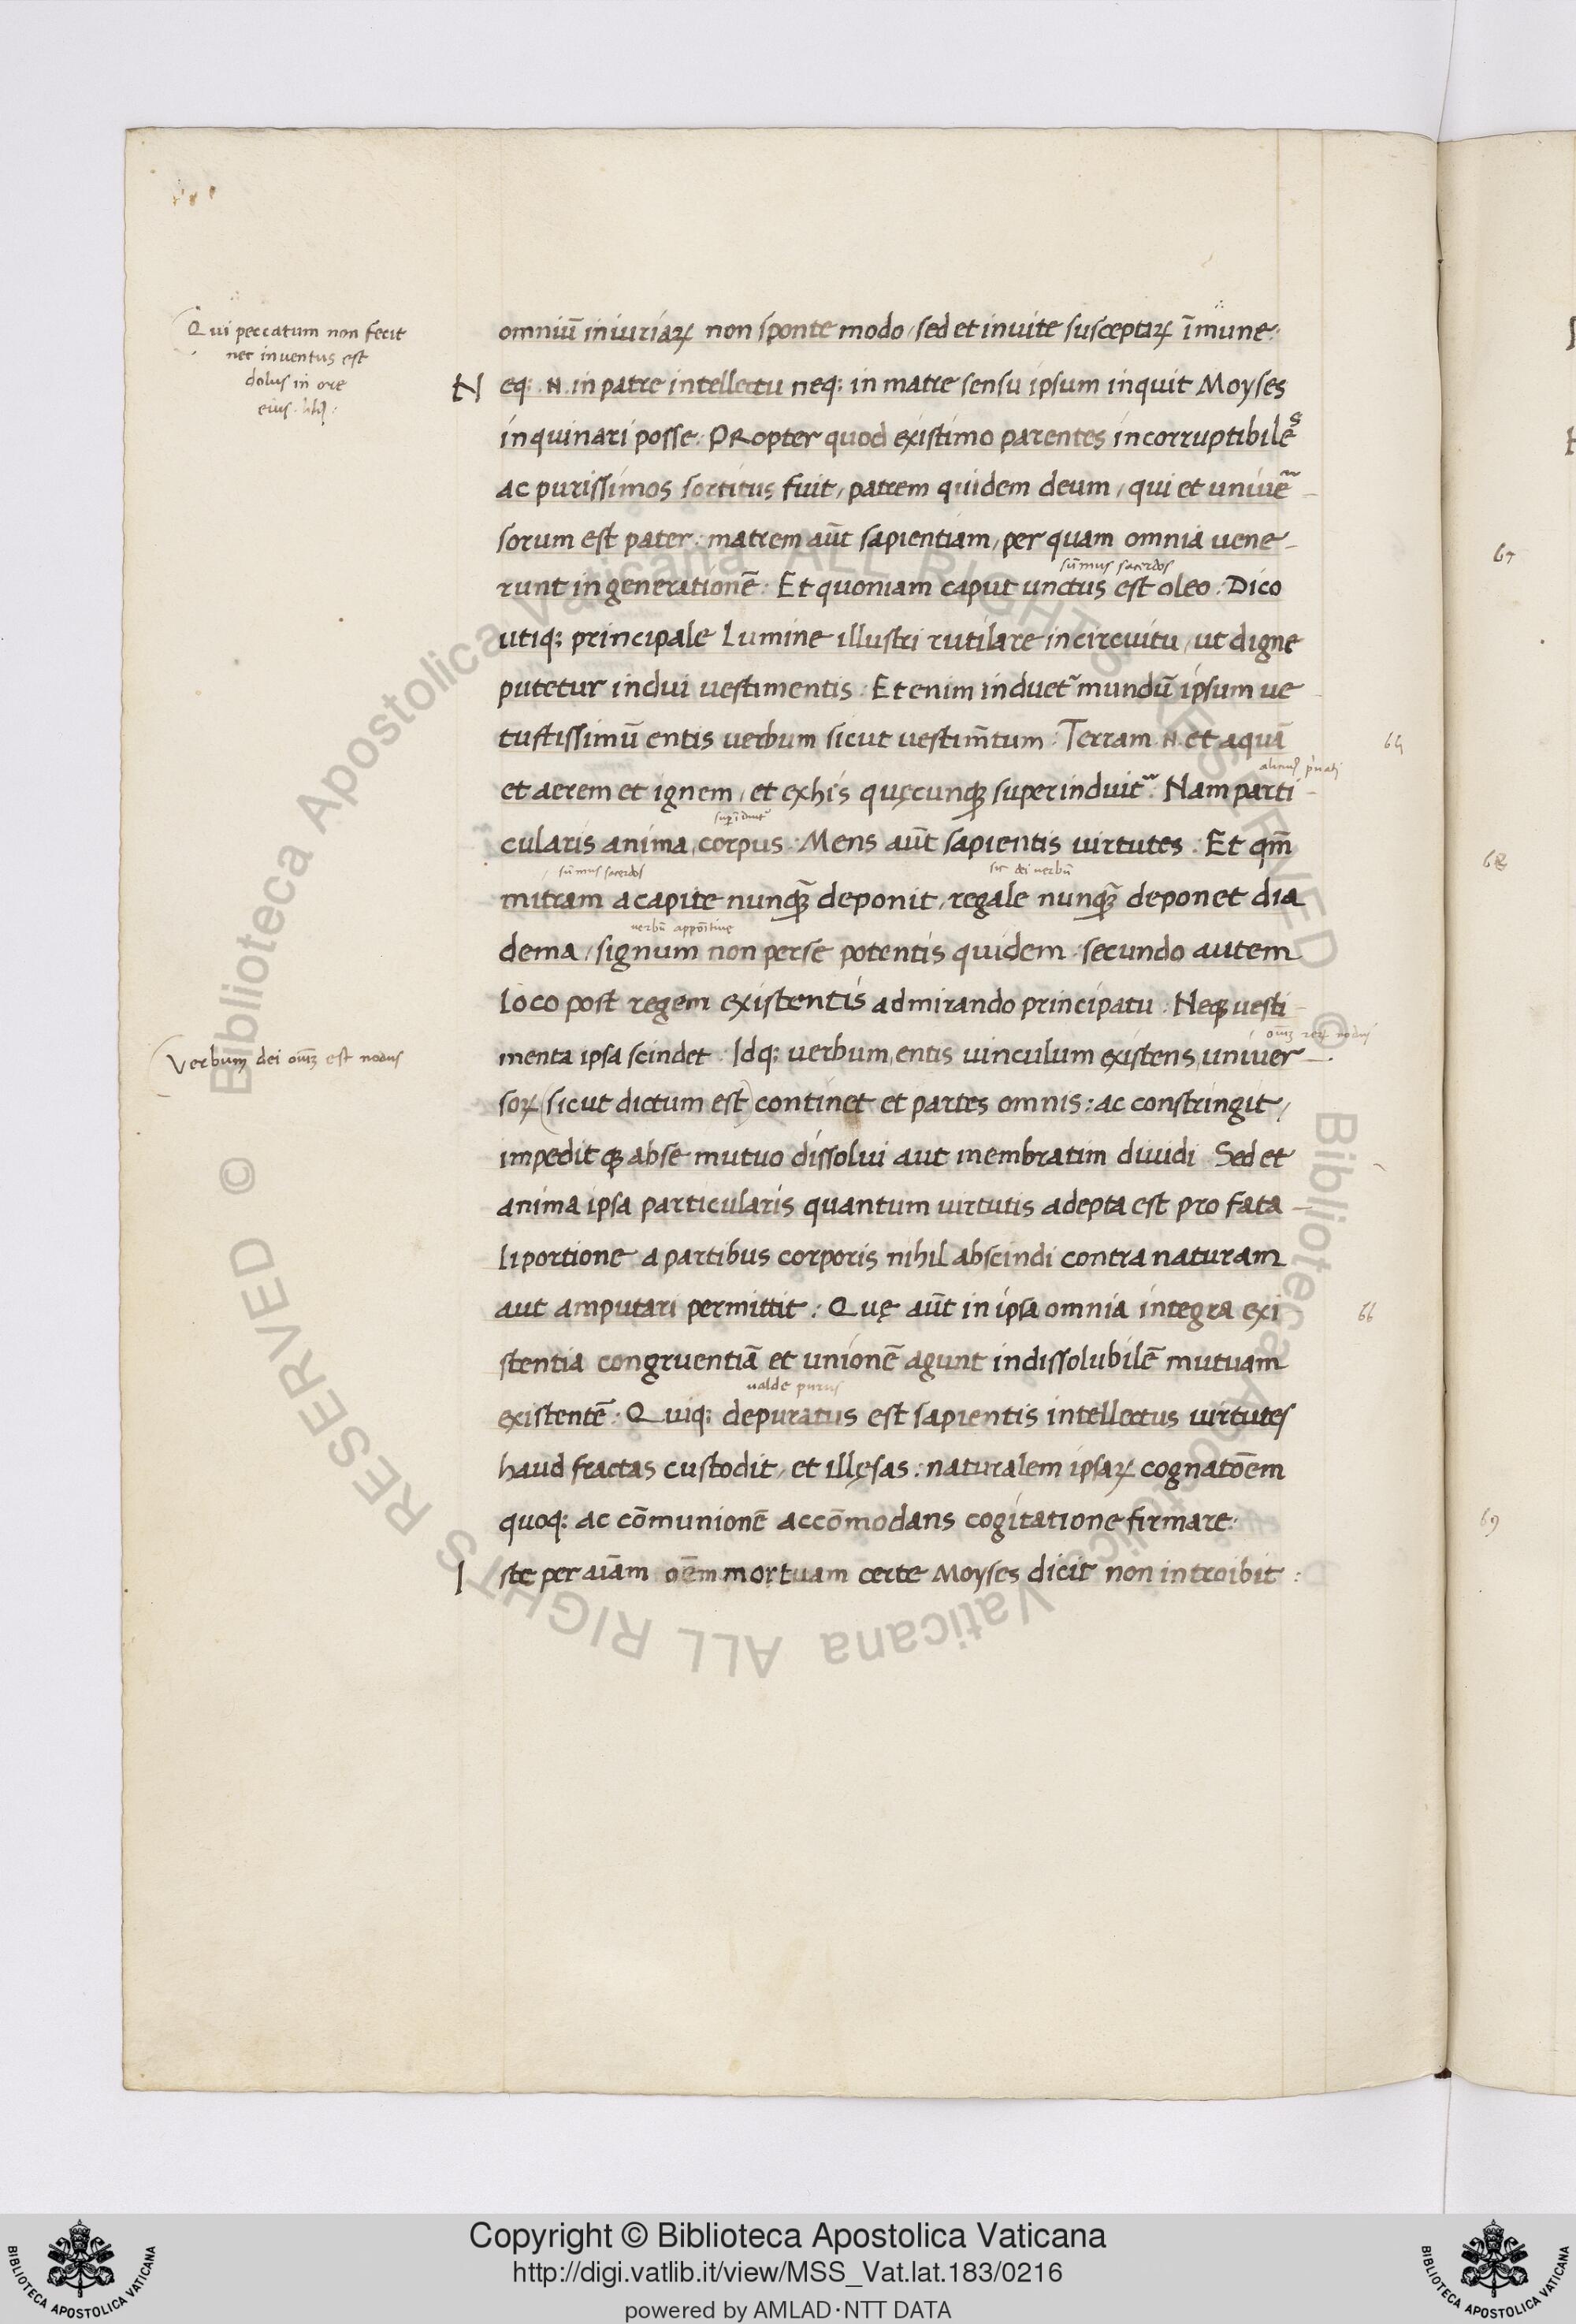 Qui peccatum non fecit
nec inventus est
dolus in ore
eius.
omniū iniuriaꝝ non sponte modo / sed et inuite susceptaꝝ īmune:
Neq: .N. in patre intellectu neq: in matre sensu ipsum inquit Moyses
inquinari posse: PRopter quod existimo parentes incorruptibiles
ac purissimos sortitus fuit, patrem quidem deum, qui et univer̃-
sorum est pater: matrem aūt sapientiam, per quam omnia vene-
summus sacerdos
runt in generationē: Et quoniam caput unctus est oleo: Dico
utiq: principale Lumine illustri rutilare in circuitu, ut digne
putetur indui vestimentis: Et enim induet᷑ mundū ipsum ve-
tustissimū entis verbum sicut vestim̄tum: Terram .N. et aquā
64
et aerem et ignem, et ex his quęcunqꝫ superinduit: Nam parti-
cularis anima corpus: Mens aūt sapientis virtutes: Et qm̄
sūmus sacerdos sic dei verbū
mitram a capite nunqꝫ deponit, regale nunqꝫ deponet dia
dema, signum non per se potentis quidem: secundo autem
loco post regem existentis admirando principatu: Neqꝫ vesti-
omīꝫ reꝝ nodus
Verbum dei omīꝫ est nodus
menta ipsa scindet: Idq: verbum entis vinculum existens univer-
soꝝ (sicut dictum est) continet et partes omnis: ac constringit,
impeditqꝫ ab se mutuo dissolui aut membratim diuidi Sed et
anima ipsa particularis quantum virtutis adepta est pro fata-
li portione a partibus corporis nihil abscindi contra naturam
aut amputari permittit: Quę aūt in ipsa omnia integra exi
66
stentia congruentiā et unionē agunt indissolubilē mutuam
valde purus
existentē: Quiq: depuratus est sapientis intellectus virtutes
haud fractas custodit, et illęsas: naturalem ipsaꝝ cognatōem
quoq: ac cōmunionē accōmodans cogitatione firmare:
Iste per aīam oēm mortuam certe Moyses dicit non introibit:
67
68
69
© Biblioteca Apostolica Vaticana ALL RIGHTS RESERVED
© Biblioteca Apostolica Vaticana ALL RIGHTS RESERVED
Copyright © Biblioteca Apostolica Vaticana
http://digi.vatlib.it/view/MSS_Vat.lat.183/0216
powered by AMLAD·NTT DATA
BIBLIOTECA APOSTOLICA VATICANA
BIBLIOTECA APOSTOLICA VATICANA